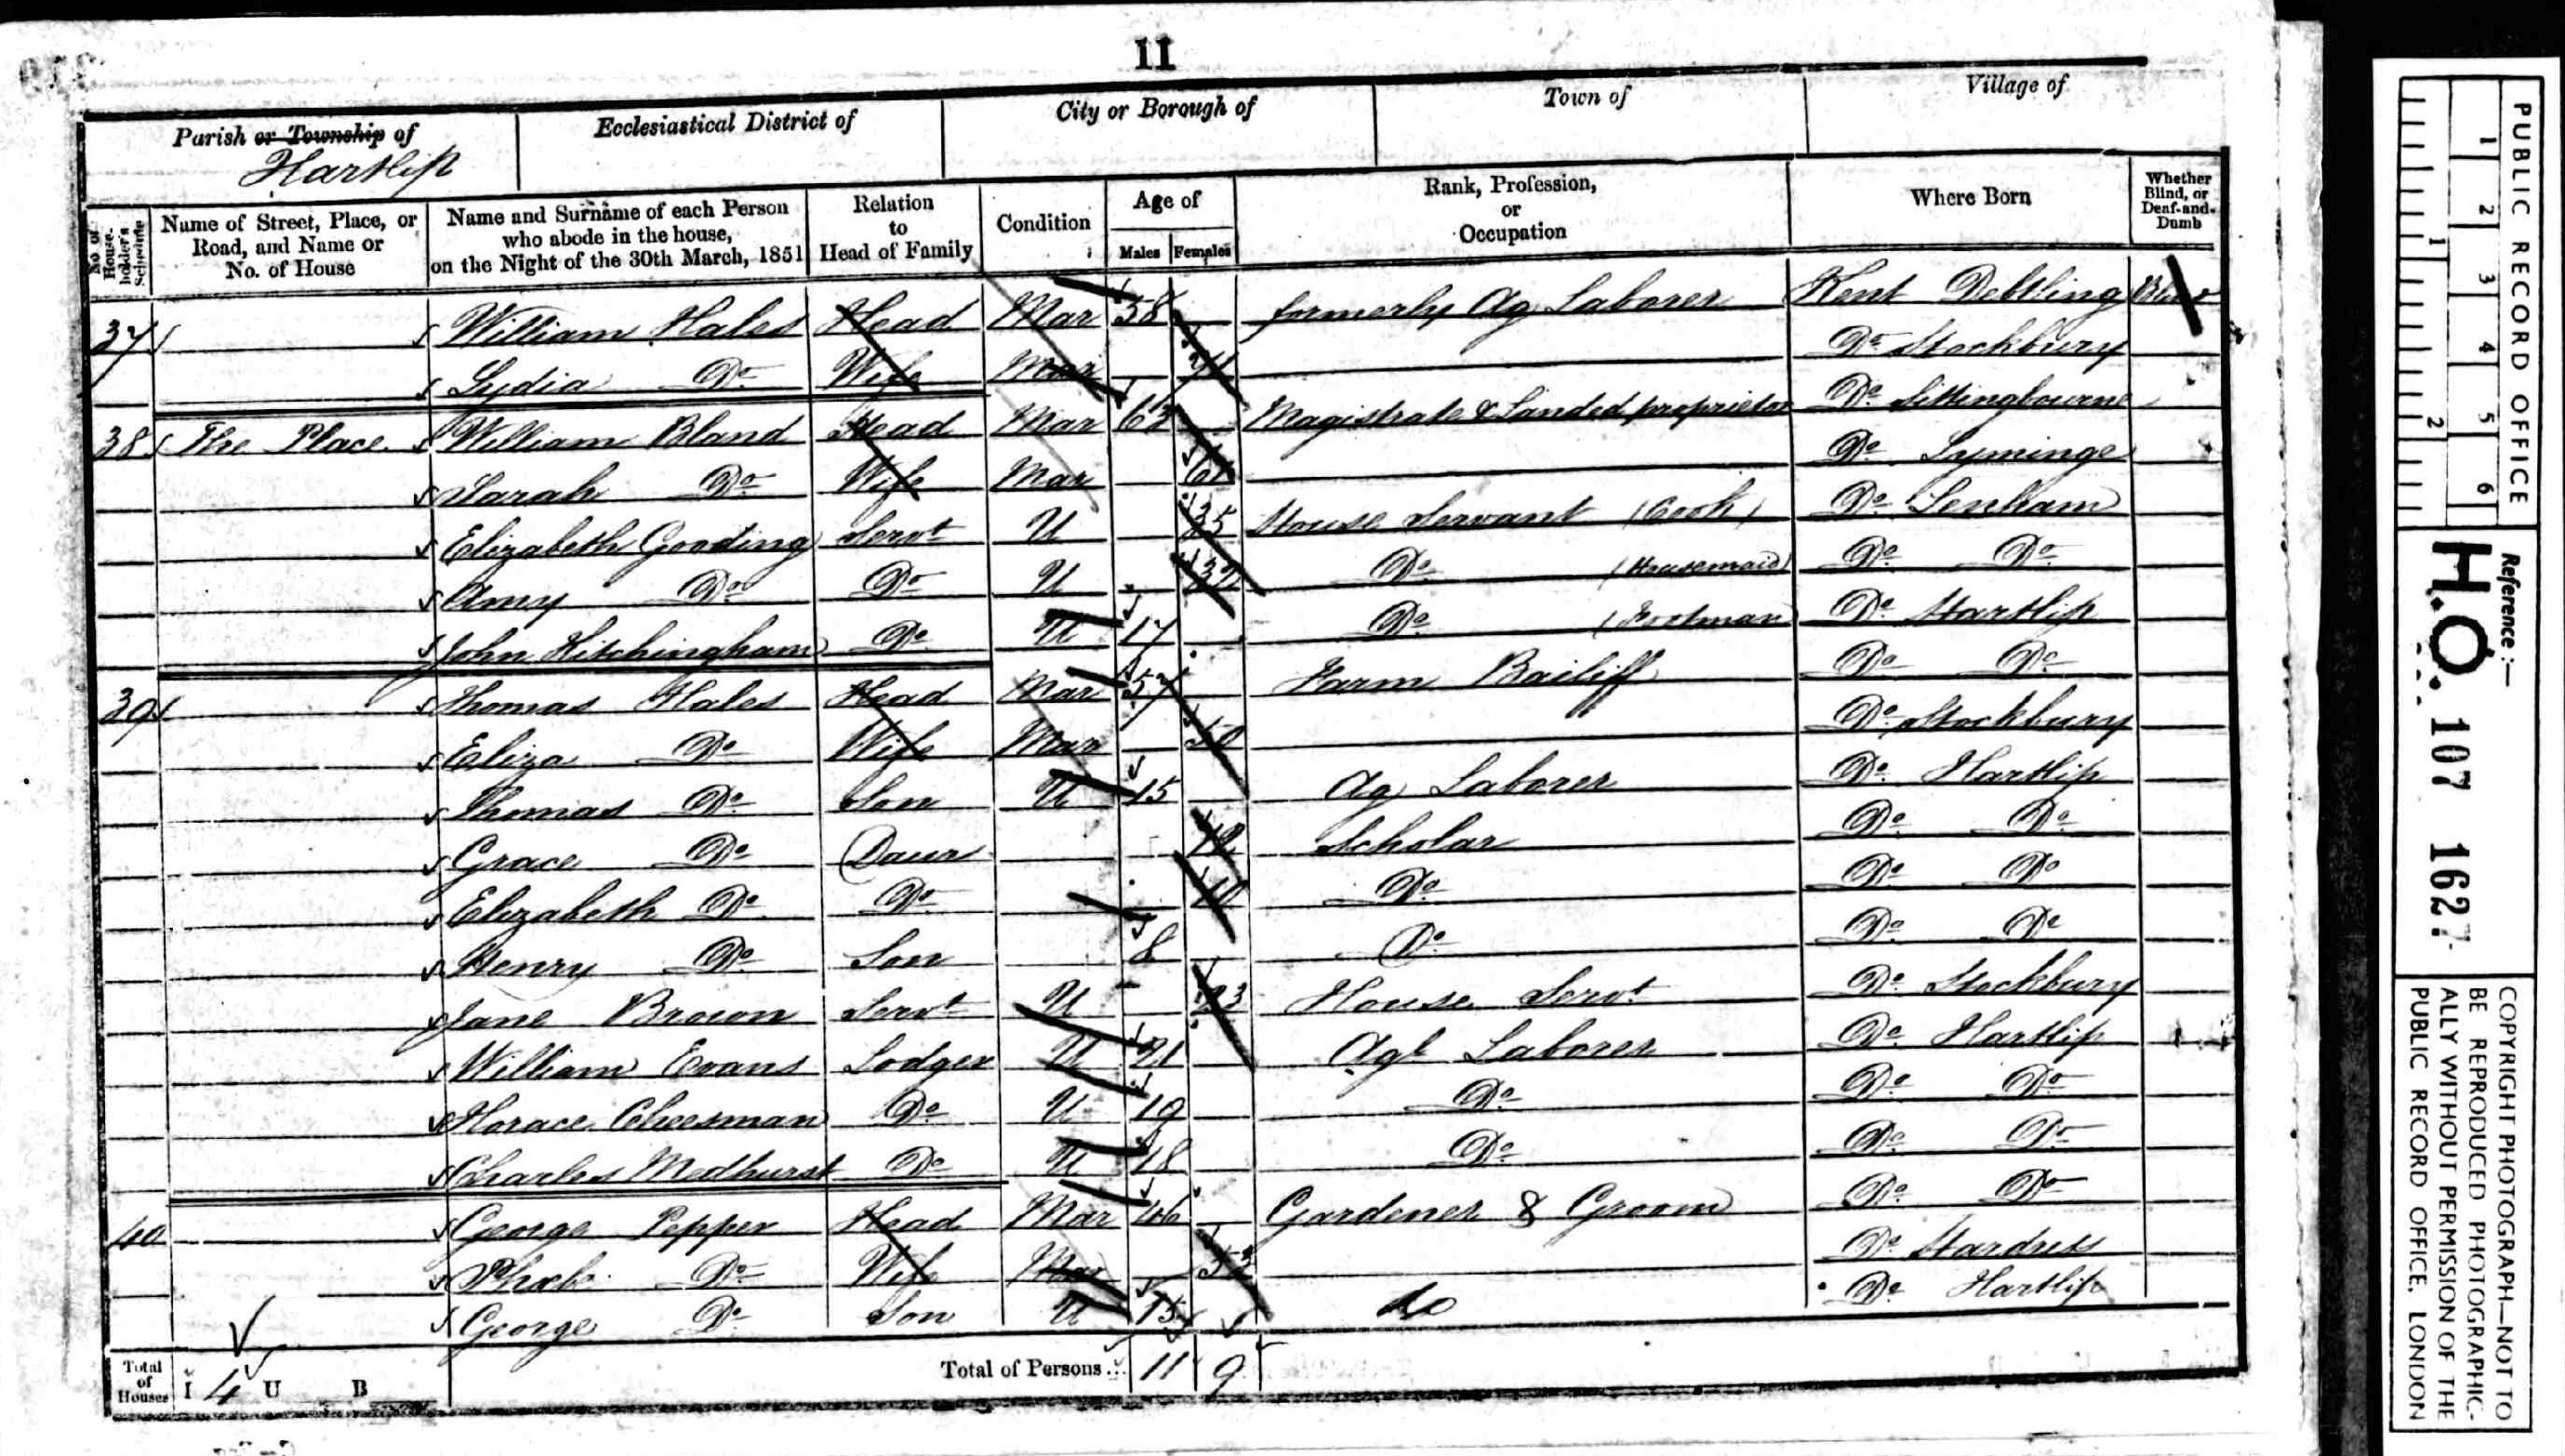 11
Parish or Township of
Hartlip
Ecclesiastical District of
City or Borough of
Town of
Village of
No. of House-holder's Schedule
Name of Street, Place, or Road, and Name or No. of House
Name and Surname of each Person who abode in the house, on the Night of the 30th March, 1851
Relation to Head of Family
Condition
Age of
Males Females
Rank, Profession, or Occupation
Where Born
Whether Blind, or Deaf-and-Dumb
37 William Hales Head Mar 58 formerly Ag Laborer Kent Debtling Blind
Lydia Do Wife Mar Do Stockbury
38 The Place William Bland Head Mar 62 Magistrate & Landed proprietor Do Sittingbourne
Sarah Do Wife Mar 61 Do Lyminge
Elizabeth Gooding Servt U 35 House Servant (Cook) Do Lenham
Amy Do Do U 32 Do (Housemaid) Do Do
John Hitchingham Do U 17 Do (Footman Do Hartlip
39 Thomas Hales Head Mar 57 Farm Bailiff Do Do
Eliza Do Wife Mar 50 Do Stockbury
Thomas Do Son U 15 Ag Laborer Do Hartlip
Grace Do Daur 12 Scholar Do Do
Elizabeth Do Do 10 Do Do Do
Henry Do Son 8 Do Do Do
Jane Brown Servt U 23 House Servt Do Stockbury
William Evans Lodger U 21 Agl Laborer Do Hartlip
Horace Cheesman Do U 19 Do Do Do
Charles Medhurst Do U 18 Do Do Do
40 George Pepper Head Mar 46 Gardener & Groom Do Do
Phœbe Do Wife Mar 52 Do Hardress
George Do Son U 15 do Do Hartlip
Total of Houses I 4 U B
Total of Persons 11 9
PUBLIC RECORD OFFICE
1 2 3 4 5 6
1 2
Reference :—
H.O. 107 1627
COPYRIGHT PHOTOGRAPH—NOT TO
BE REPRODUCED PHOTOGRAPHIC-
ALLY WITHOUT PERMISSION OF THE
PUBLIC RECORD OFFICE. LONDON